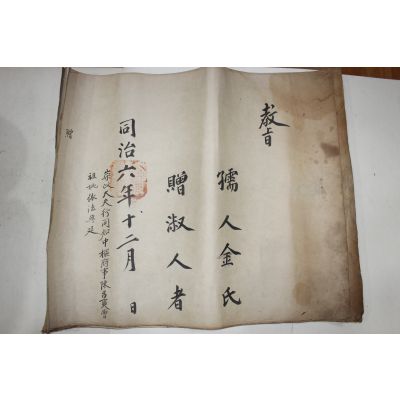 教旨
孺人金氏
贈淑人者
同治六年十二月 日
大夫行同知中樞府事陳昌奭曾
祖妣依法典追
贈